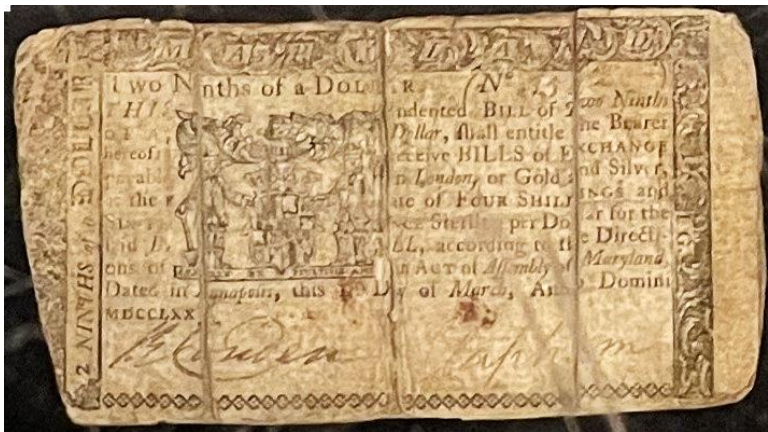 MARYLAND
Two Ninths of a DOLLAR. (No
THIS indented BILL of Two Ninths
of a Dollar, shall entitle the Bearer
hereof to receive BILLS of EXCHANGE
payable in London, or Gold and Silver,
at the Rate of FOUR SHILLINGS and
SIX-PENCE Sterling per Dollar for the
said BILL, according to the Directi-
ons of an ACT of Assembly of Maryland.
Dated in Annapolis, this Day of March, Anno Domini
MDCCLXX
2 NINTHS of a DOLLAR